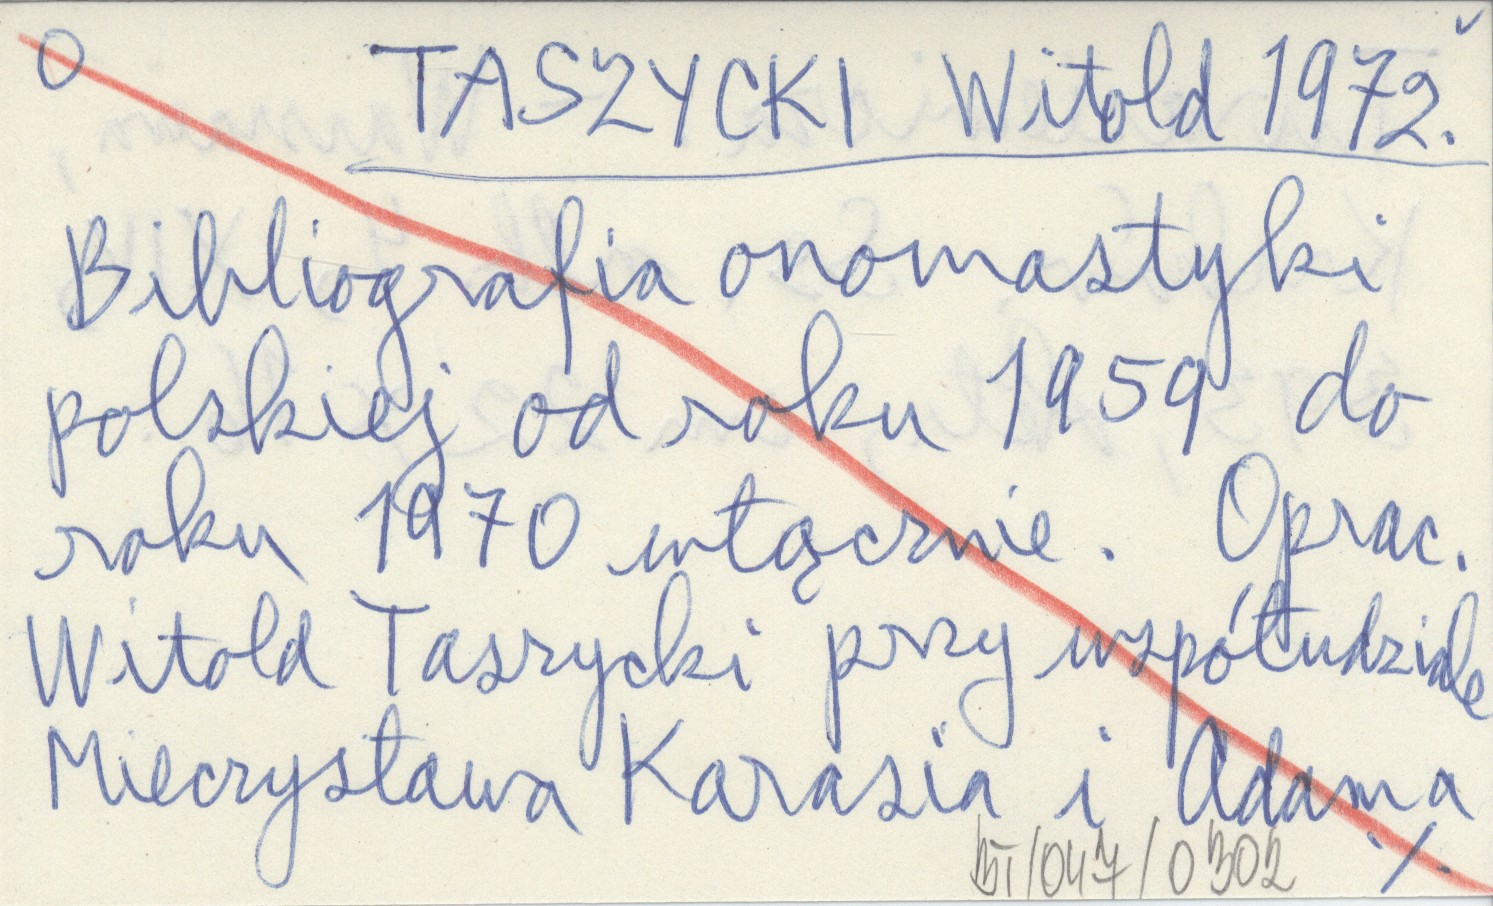 O TASZYCKI Witold 1972.
Bibliografia onomastyki
polskiej od roku 1959 do
roku 1970 włącznie. Oprac.
Witold Taszycki przy współudziale
Mieczysława Karasia i Adama
./.
/047/0302